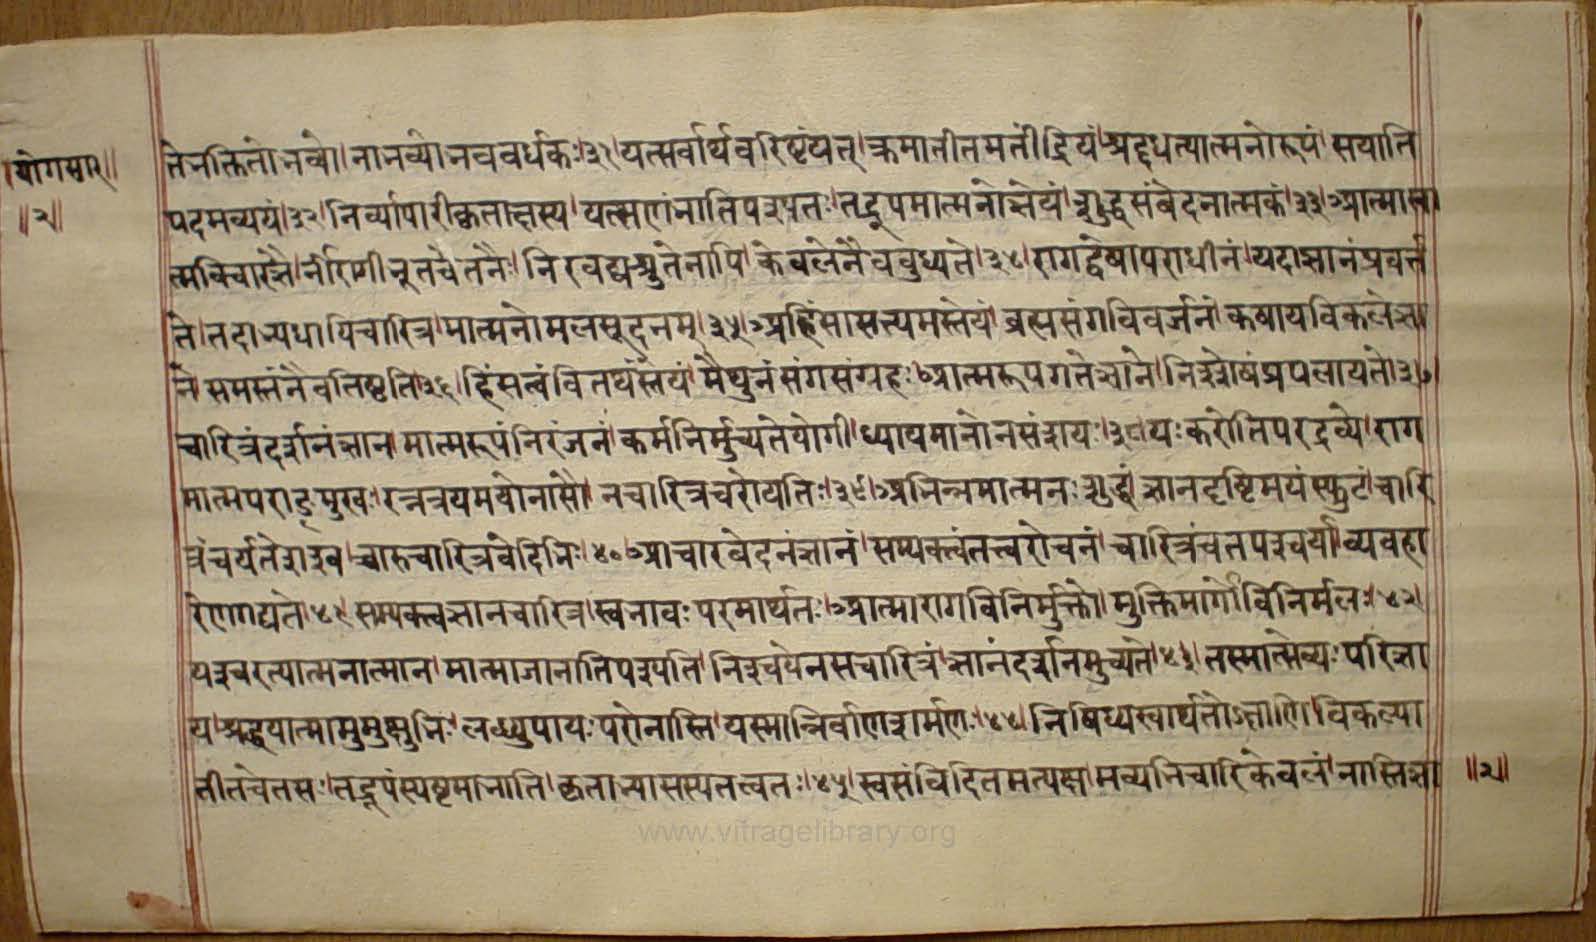 योगसार॥
॥२॥
तेनक्तितोनव्यो।नानव्योनववर्धकः।३१।यत्सर्वार्थवरिष्टंयत्।क्रमातीतमतींद्रियं।श्रद्दधत्यात्मनोरूपं।सयाति
पदमव्ययं।३२।निर्व्यापारीकृताक्षस्य।यत्क्षणंनातिपश्यतः।तद्रूपमात्मनोज्ञेयं।शुद्धसंवेदनात्मकं।३३।आत्मास्वा
त्मविचारज्ञै।र्नीरागीनूतचेतनैः।निरवद्यश्रुतेनापि।केवलेनैवबुध्यते।३४।रागद्वेषापराधीनं।यदाज्ञानंप्रवर्त्त
ते।तदान्यधायिचारित्र।मात्मनोमलसूदनम्।३५।अहिंसासत्यमस्तेयं।ब्रह्मसंगविवर्जनं।कषायविकलेज्ञा
ने।समस्तंनैवतिष्ठति।३६।हिंसत्वंवितथंस्तेयं।मैथुनंसंगसंग्रहः।आत्मरूपगतेज्ञाने।निःशेषंप्रपलायते।३७।
चारित्रंदर्शनंज्ञान।मात्मरूपंनिरंजनं।कर्मनिर्मुच्यतेयोगी।ध्यायमानोनसंशयः।३८।यःकरोतिपरद्रव्ये।राग
मात्मपराङ्मुखः।रत्नत्रयमयोनासौ।नचारित्रचरोयतिः।३९।अनिन्नमात्मनःशुद्धं।ज्ञानदृष्टिमयंस्फुटं।चारि
त्रंचर्यतेशश्व।च्चारुचारित्रवेदिनिः।४०।आचारवेदनंज्ञानं।सम्यक्त्वंतत्त्वरोचनं।चारित्रंचतपश्चर्या।व्यवहा
रेणगद्यते।४१।सम्यक्त्वज्ञानचारित्र।स्वनावःपरमार्थतः।आत्मारागविनिर्मुक्तो।मुक्तिमार्गोविनिर्मलः।४२।
यश्चरत्यात्मनात्मान।मात्माजानातिपश्यति।निश्चयेनसचारित्रं।ज्ञानंदर्शनमुच्यते।४३।तस्मात्सेव्यःपरिज्ञा
य।श्रद्धयात्मामुमुक्षुनिः।लब्ध्युपायःपरोनास्ति।यस्मान्निर्वाणशर्मणः।४४।निषिध्यस्वार्थतोऽक्षाणि।विकल्पा
तीतचेतसः।तद्रूपंस्पष्टमानाति।कृतान्यासस्यतत्त्वतः।४५।स्वसंविदितमत्यक्ष।मव्यनिचारिकेवलं।नास्तिज्ञा
॥२॥
www.vitragelibrary.org